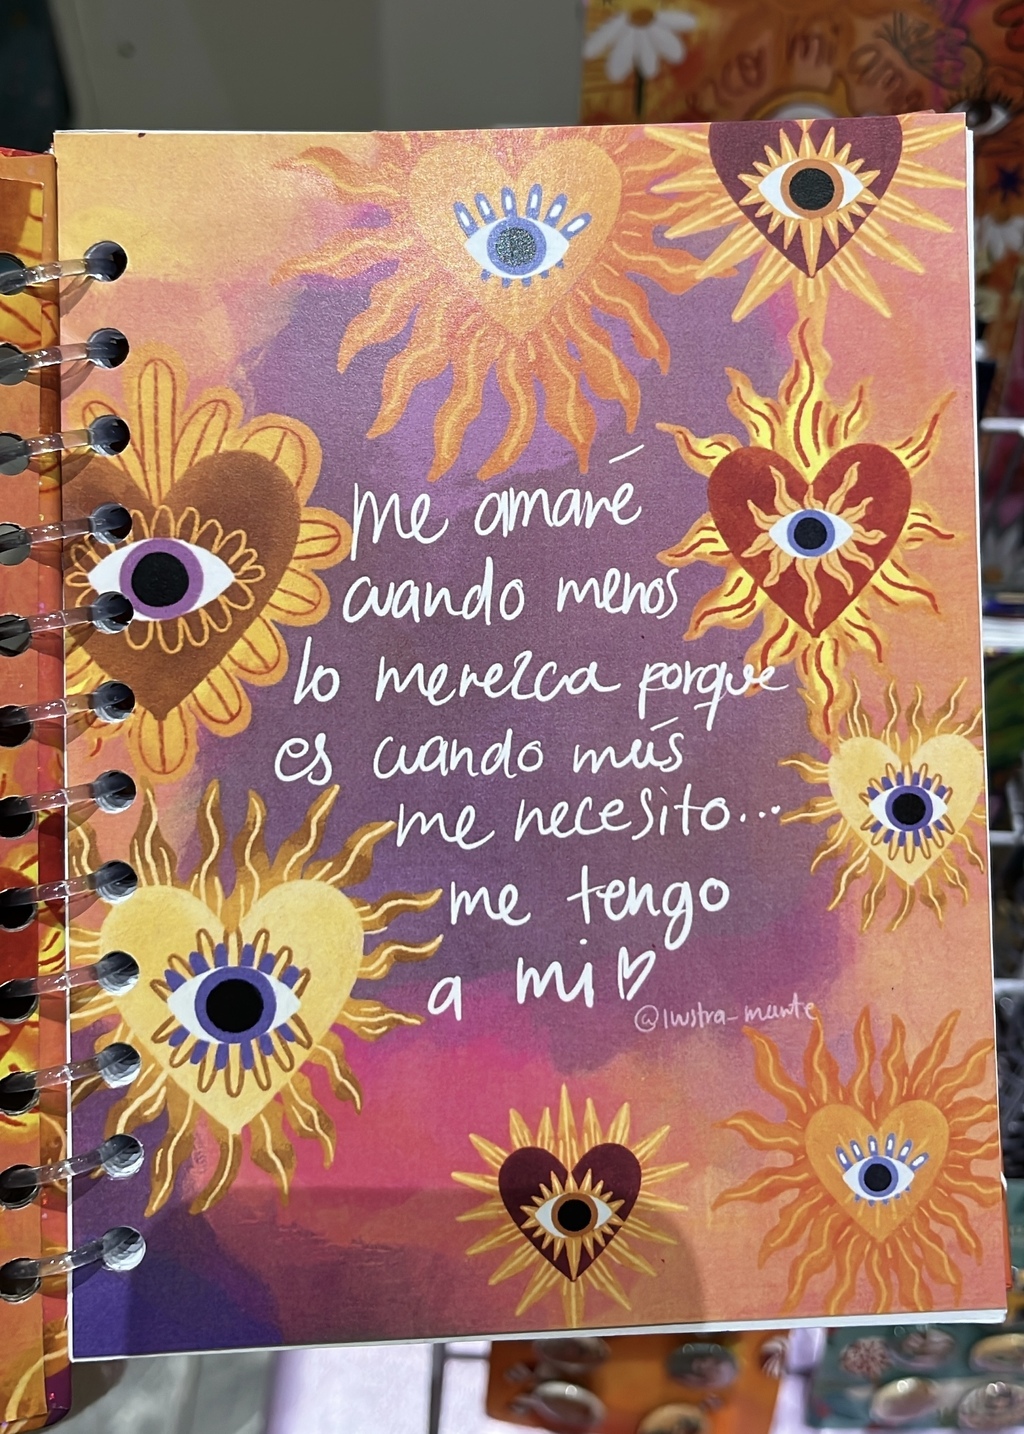 me amaré
cuando menos
lo merezca porque
es cuando más
me necesito...
me tengo
a mi